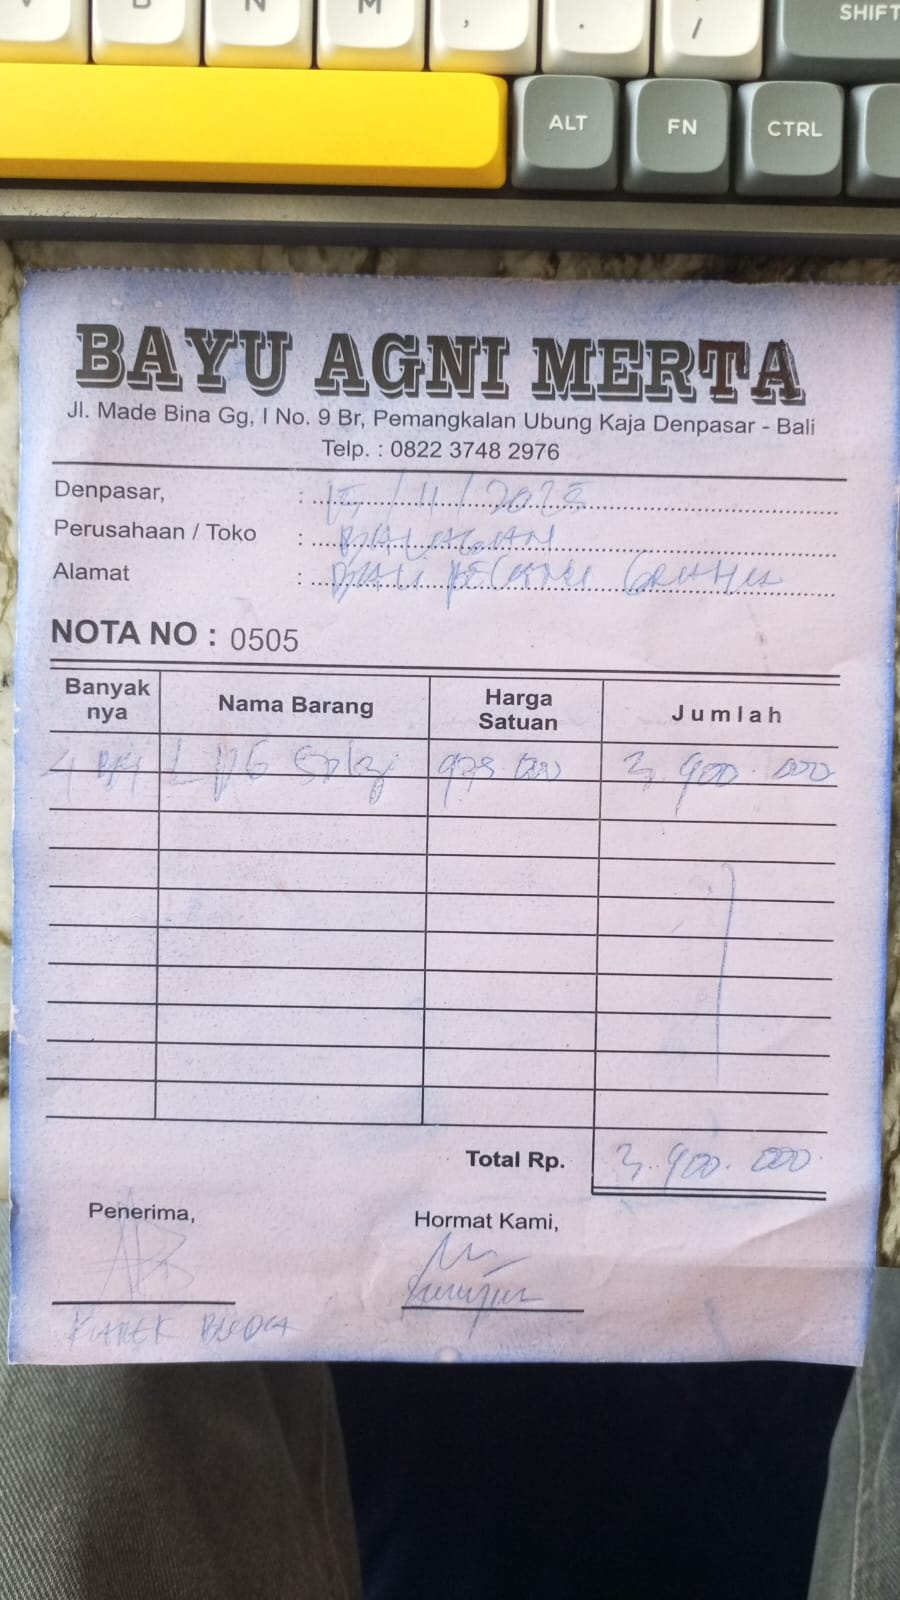 B N M , . / SHIFT
ALT FN CTRL
BAYU AGNI MERTA
Jl. Made Bina Gg, I No. 9 Br, Pemangkalan Ubung Kaja Denpasar - Bali
Telp. : 0822 3748 2976
Denpasar, : 15/11/2025
Perusahaan / Toko :
Alamat :
NOTA NO : 0505
Banyak nya Nama Barang Harga Satuan Jumlah
4 LPG 50kg 975.000 3.900.000
Total Rp. 3.900.000
Penerima, Hormat Kami,